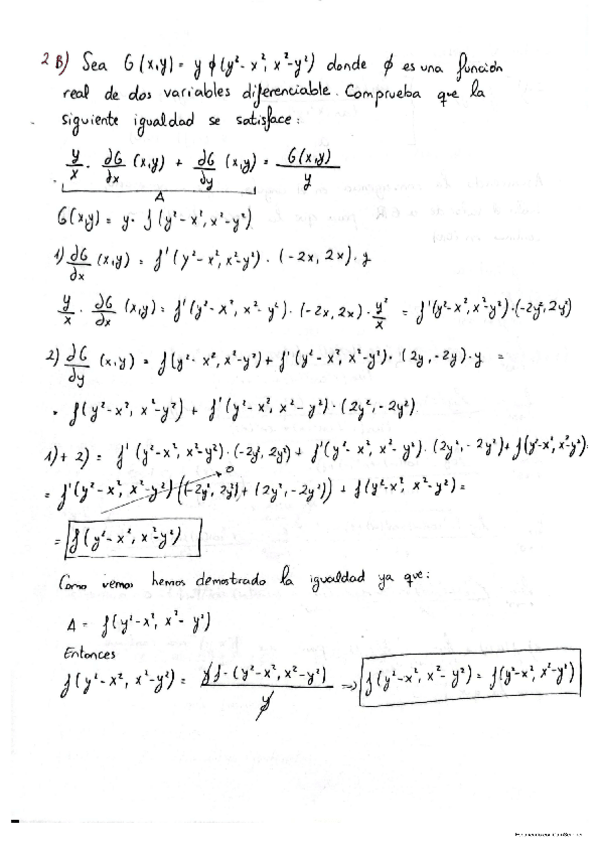 2 B) Sea G(x,y) = y ϕ(y²-x², x²-y²) donde ϕ es una función
real de dos variables diferenciable. Comprueba que la
siguiente igualdad se satisface:
y/x · ∂G/∂x (x,y) + ∂G/∂y (x,y) = G(x,y)/y
A
G(x,y) = y · f(y²-x², x²-y²)
1) ∂G/∂x (x,y) = f'(y²-x², x²-y²) · (-2x, 2x) · y
y/x · ∂G/∂x (x,y) = f'(y²-x², x²-y²) · (-2x, 2x) · y²/x = f'(y²-x², x²-y²) · (-2y², 2y²)
2) ∂G/∂y (x,y) = f(y²-x², x²-y²) + f'(y²-x², x²-y²) · (2y, -2y) · y =
= f(y²-x², x²-y²) + f'(y²-x², x²-y²) · (2y², -2y²)
1) + 2) = f'(y²-x², x²-y²) · (-2y², 2y²) + f'(y²-x², x²-y²) · (2y², -2y²) + f(y²-x², x²-y²)
= f'(y²-x², x²-y²) ((-2y², 2y²) + (2y², -2y²)) + f(y²-x², x²-y²) =
0
= f(y²-x², x²-y²)
Como vemos hemos demostrado la igualdad ya que:
A = f(y²-x², x²-y²)
Entonces
f(y²-x², x²-y²) = y f · (y²-x², x²-y²)/y → f(y²-x², x²-y²) = f(y²-x², x²-y²)